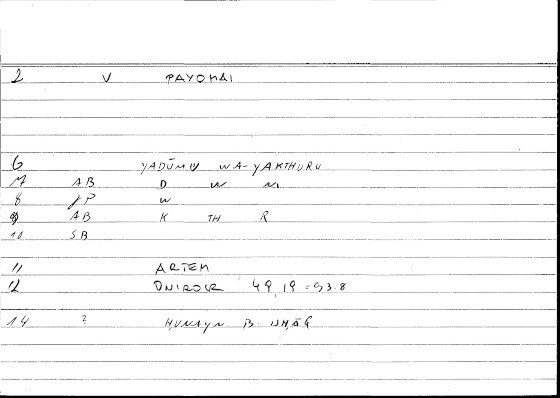 2 V PAYOHAI
6 YADŪMU WA-YAKTHURU
7 AB D W M
8 JP W
9 AB K TH R
10 SB
11 ARTEM
12 ONIROCR 49,19 = 93.8
14 ? ḤUNAYN B. ISḤĀQ